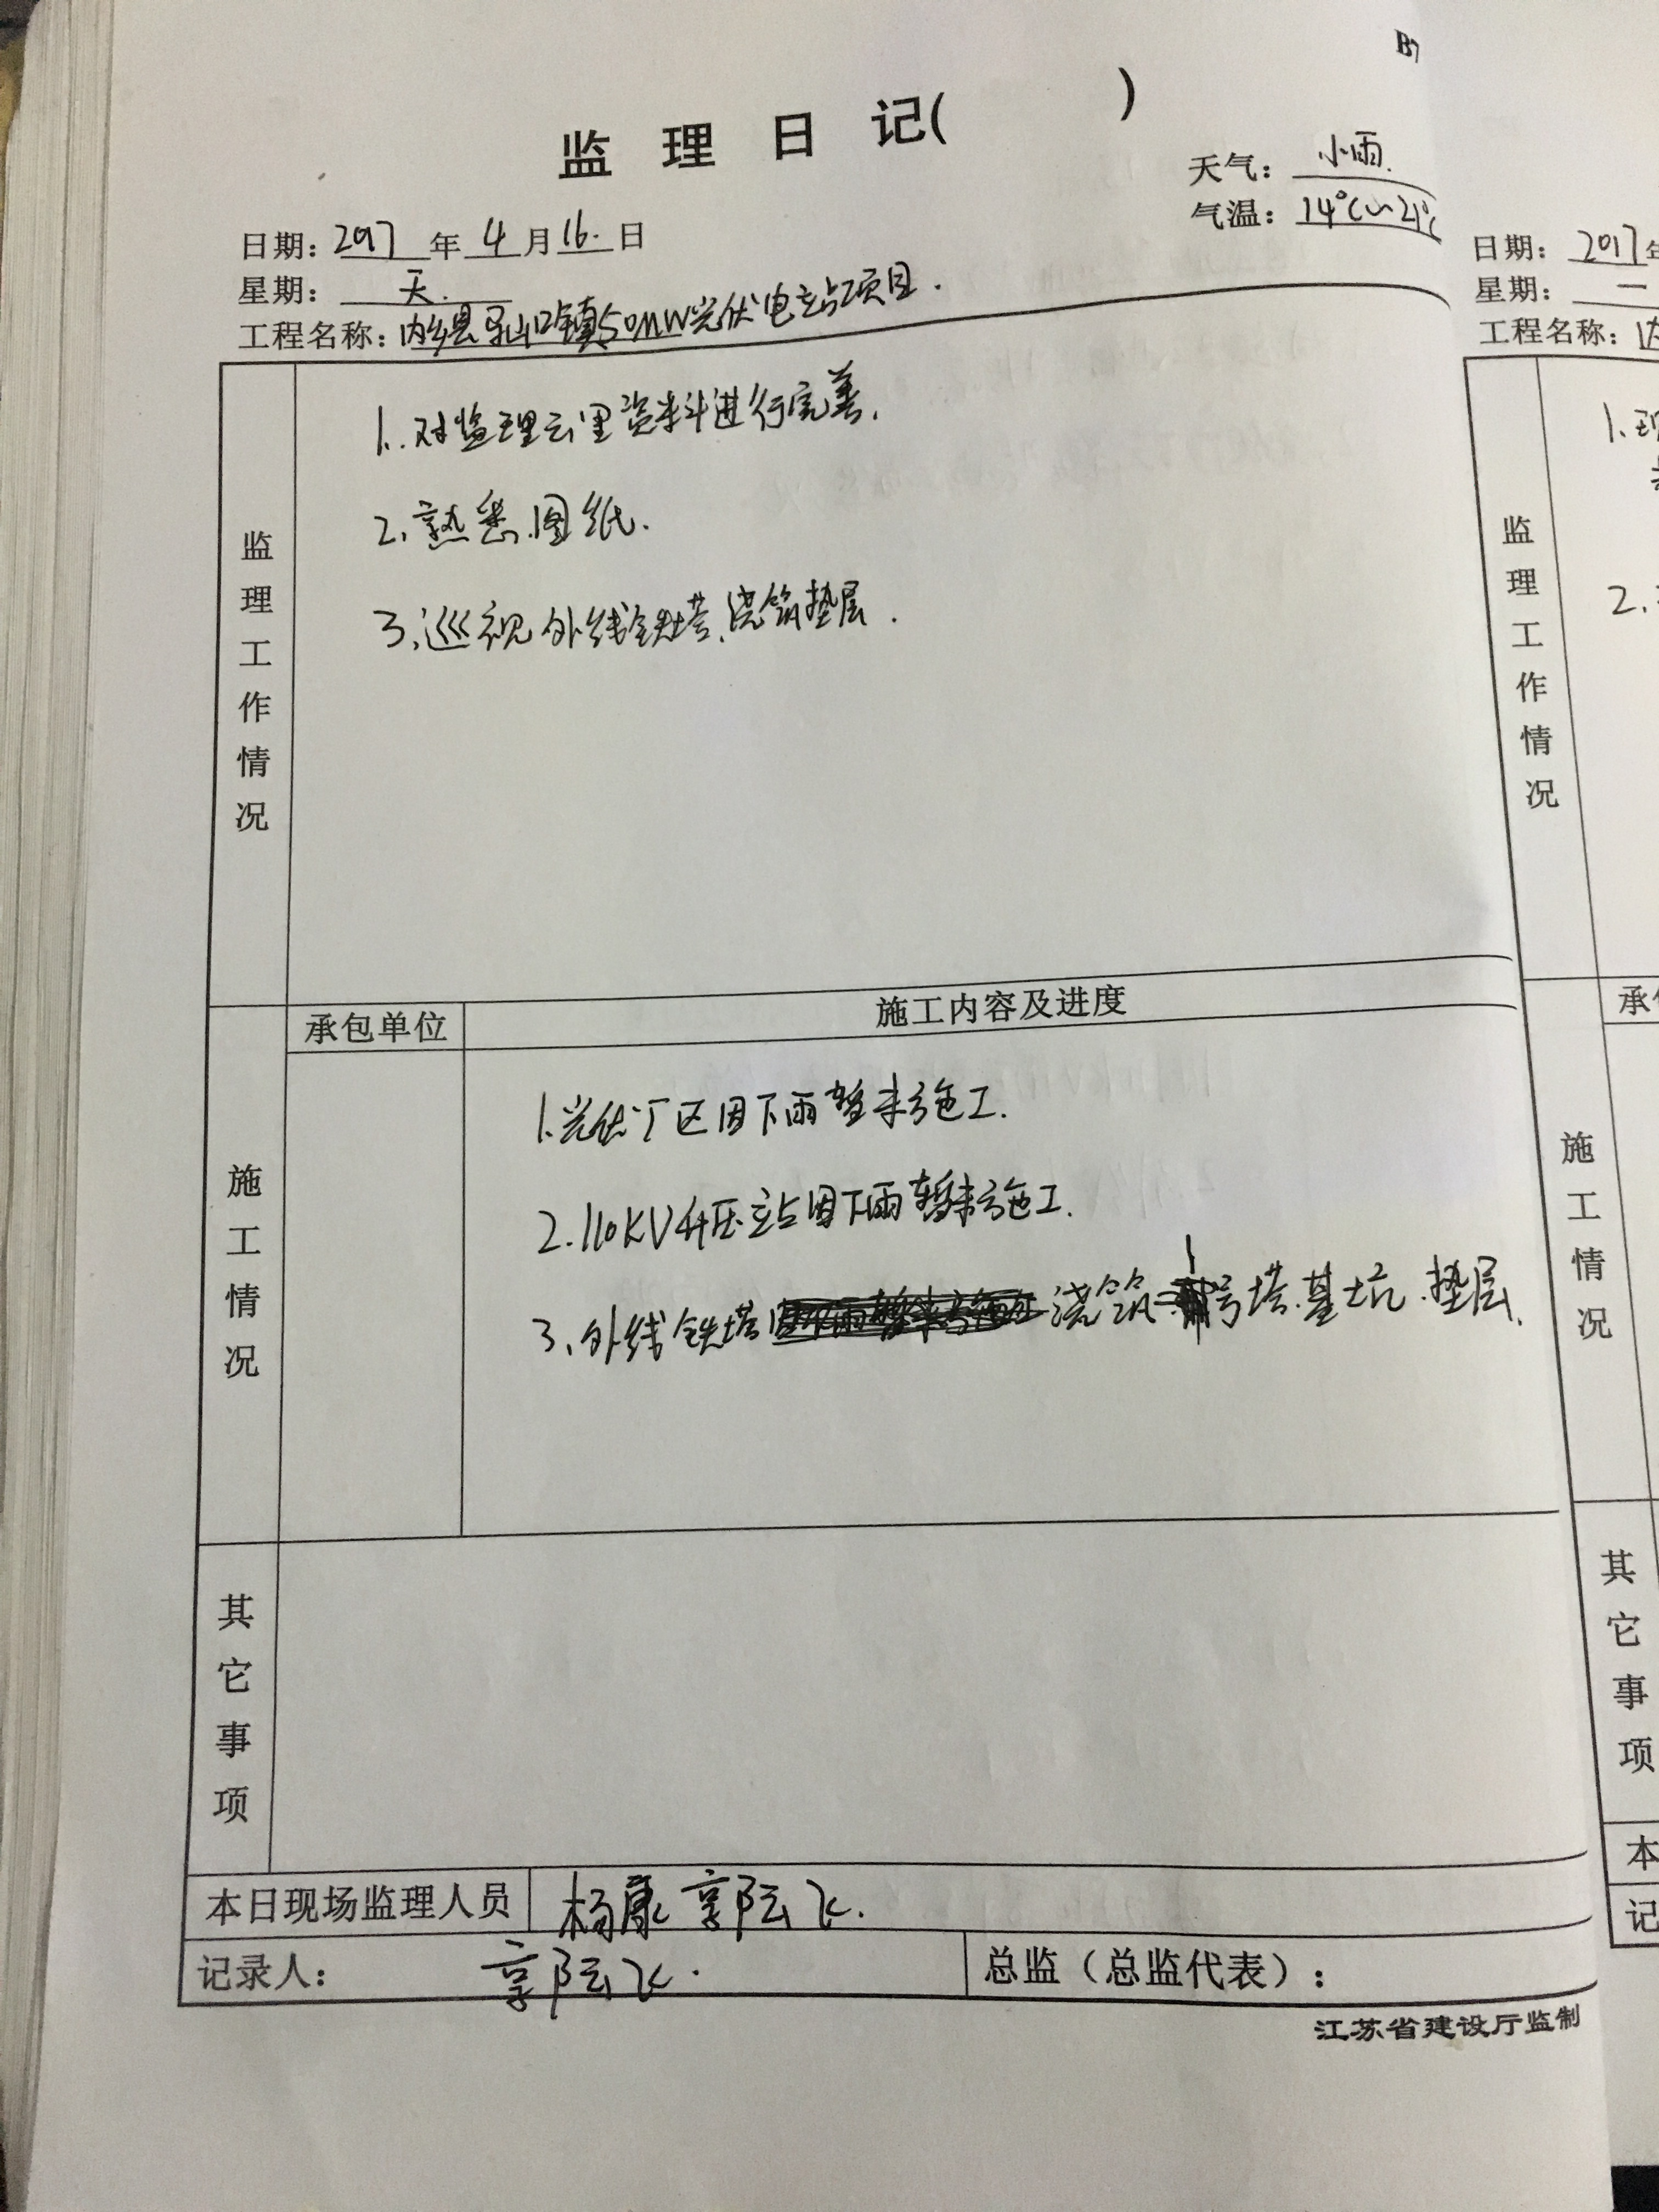 B7
监理日记(    )
天气：小雨.
气温：14℃~21℃
日期：2017年4月16.日
星期：天.
工程名称：内乡县马山口镇50MW光伏电站项目.
监理工作情况
1.对监理云里资料进行完善.
2.熟悉图纸.
3.巡视外线铁塔,浇筑垫层.
施工情况
承包单位
施工内容及进度
1.光伏厂区因下雨暂未施工.
2.110KV升压站因下雨暂未施工.
3、外线铁塔因下雨暂未施工浇筑1号塔基坑垫层.
其它事项
本日现场监理人员
杨康 郭陆飞.
记录人：郭陆飞.
总监（总监代表）：
江苏省建设厅监制
日期：2017年
星期：一
工程名称：内
监理工作情况
1.现
2.
承
施工情况
其它事项
本
记